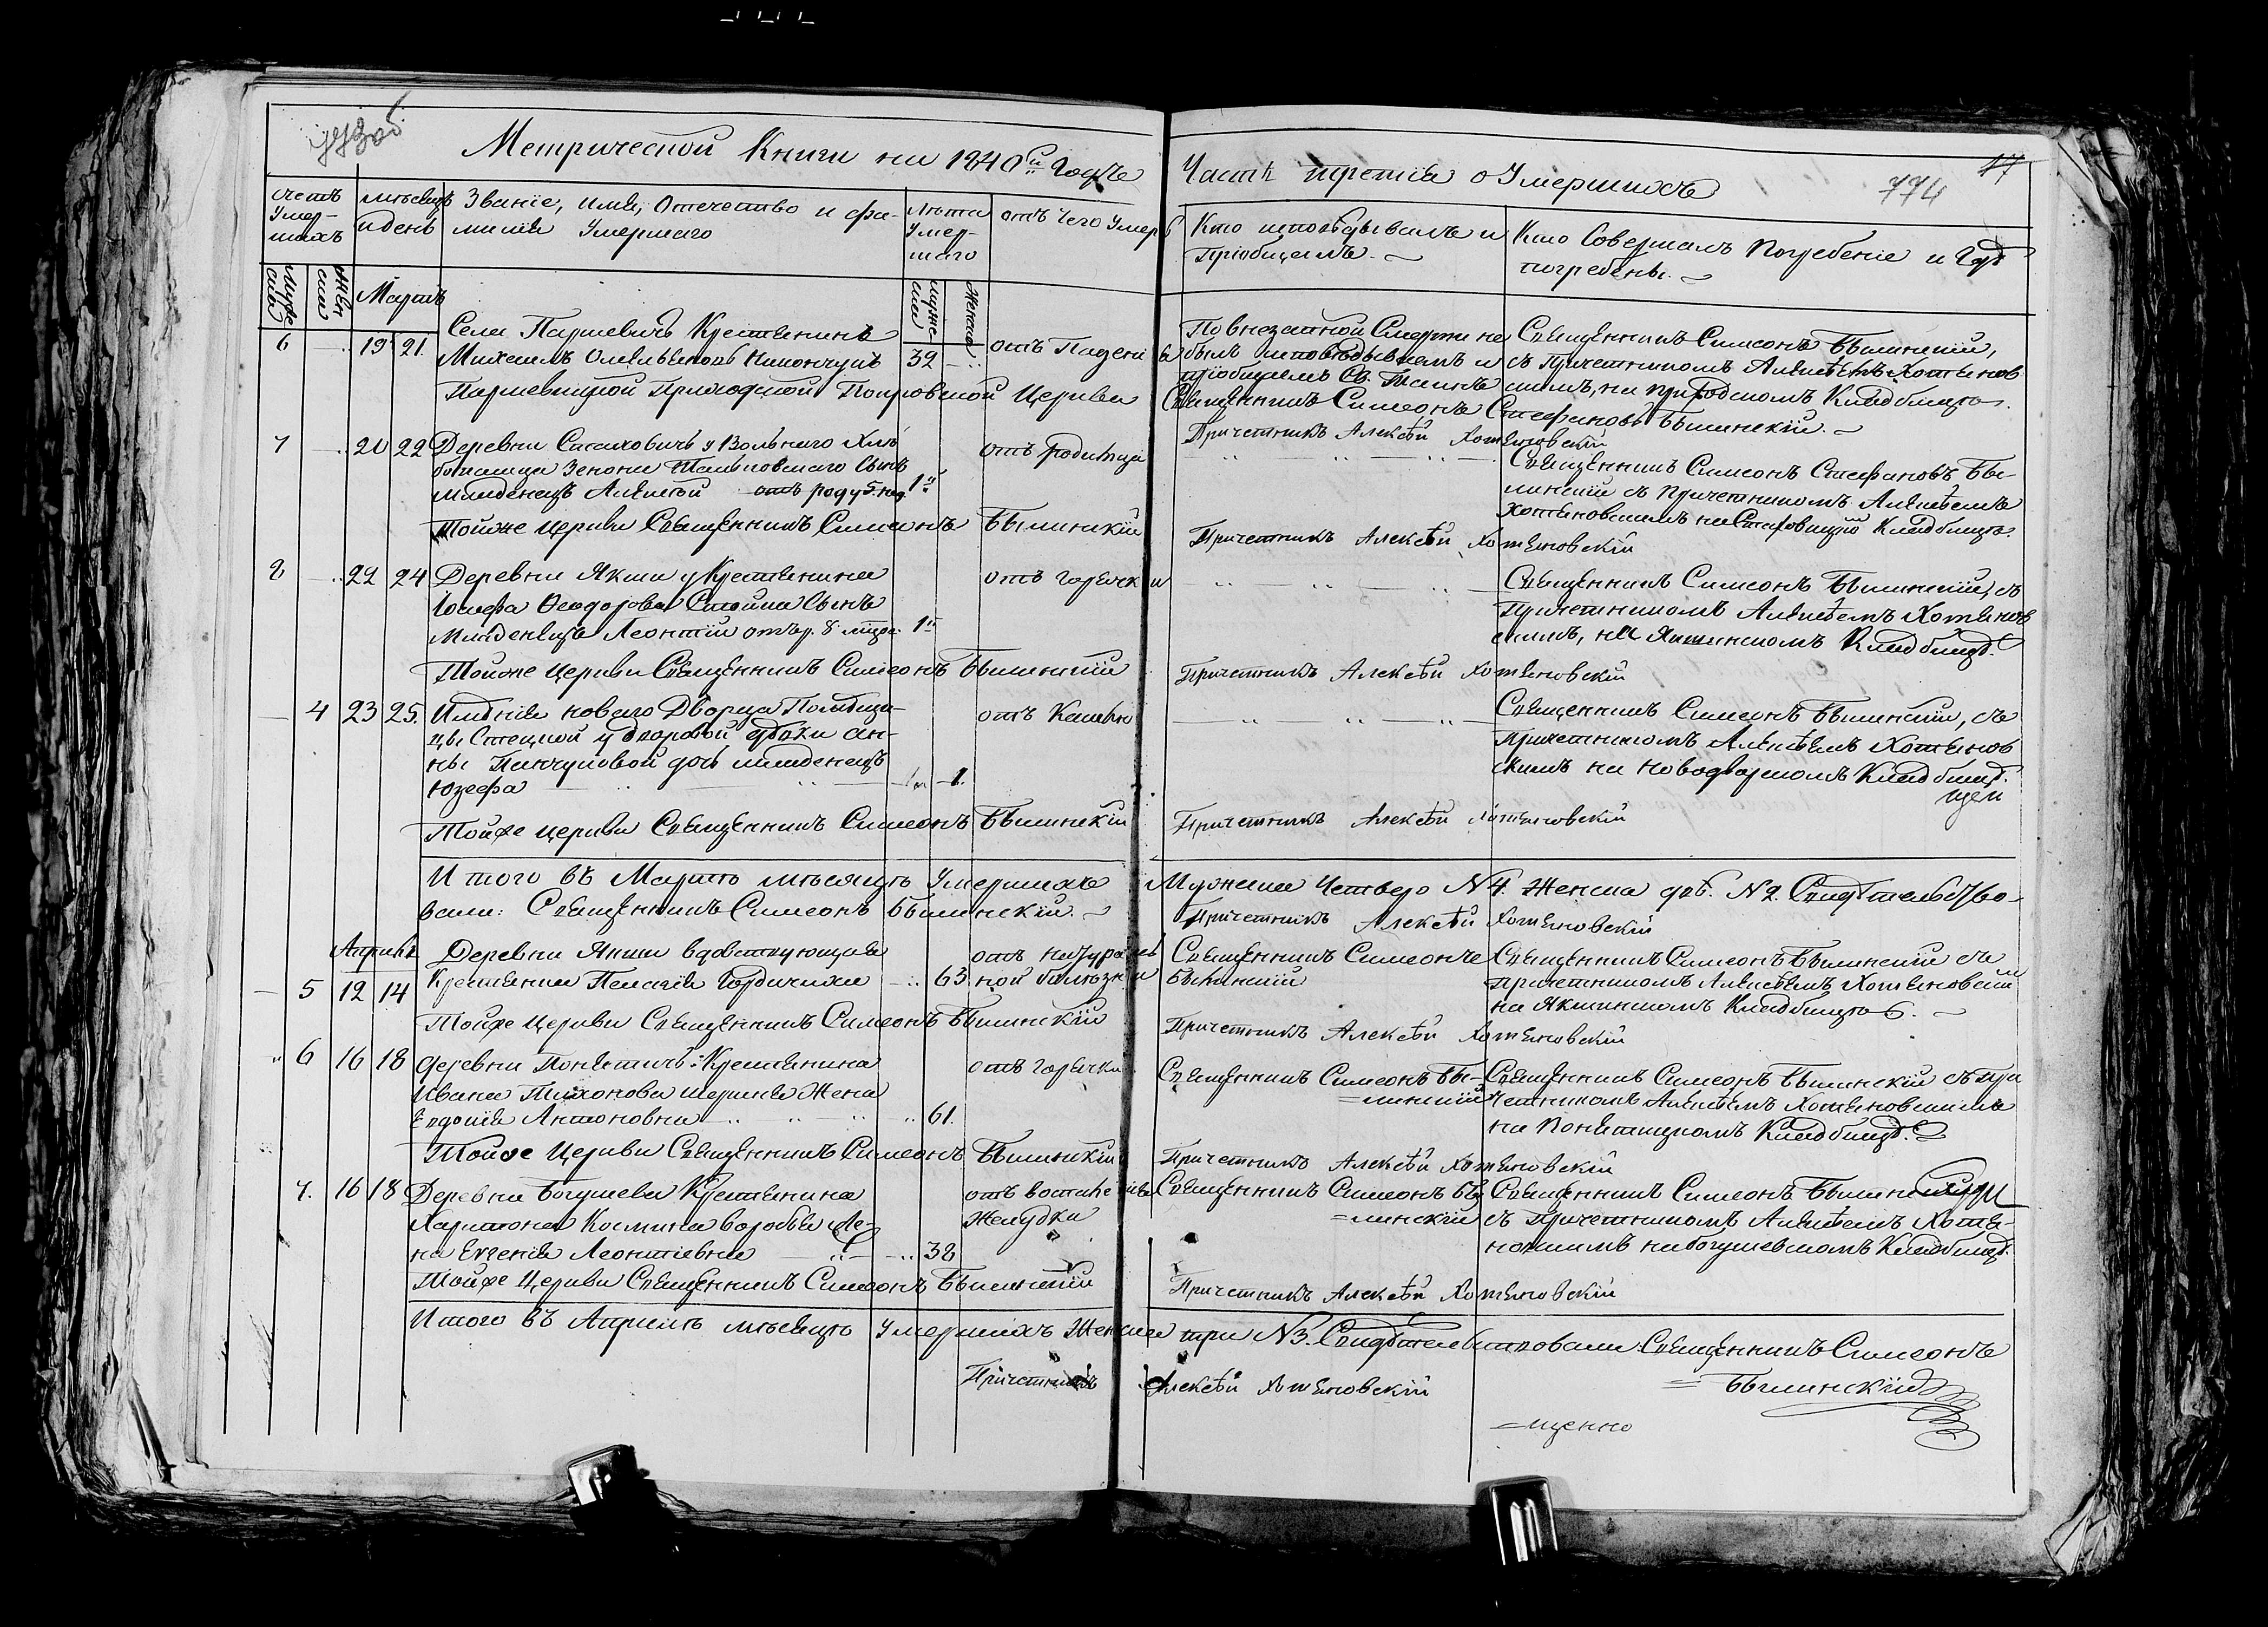 773 об
Метрической Книги на 1840й Годъ
Часть третія о Умершихъ
47
774
счетъ Умер-шихъ
мѣсяцъ и день
Званіе, имя, Отечество и фа-
милія Умершаго
Лѣта Умер-шаго
отъ чего Умеръ
Кто исповѣдывалъ и
Пріобщалъ.
Кто Совершалъ Погребеніе и Гдѣ
погребены.
Мартъ
6 19 21. Села Паршевичъ Крестьянинъ
Михаилъ 39 отъ Паденія
Паршевицкой Приходской Покровской Церкви Священникъ Симеонъ Стефановъ Былинскій.
По внезапной Смерти не
былъ исповѣдываемъ и
пріобщаемъ Св. Таинъ
Священникъ Симеонъ Былинскій,
съ Причетникомъ Алексѣемъ Хотянов
скимъ, на приходскомъ Кладбищѣ.
Причетникъ Алексѣй Хотяновскій
7 20 22 Деревни Сачковичъ у Вольнаго Хлѣ
бопашца Зенона сынъ
младенецъ Алексѣй отъ роду 5 нед. 1
отъ родимца
Священникъ Симеонъ Стефановъ Бы-
линскій съ Причетникомъ Алексѣемъ
Хотяновскимъ на Кладбищѣ.
Тойже Церкви Священникъ Симеонъ Былинскій
Причетникъ Алексѣй Хотяновскій
8 22 24 Деревни Якши у Крестьянина
Іосифа Ѳеодорова сынъ
Младенецъ Леонтій отъ р. 8 мѣся. 1
отъ горячки
Священникъ Симеонъ Былинскій, съ
Причетникомъ Алексѣемъ Хотянов
скимъ, на Якшинскомъ Кладбищѣ.
Тойже Церкви Священникъ Симеонъ Былинскій
Причетникъ Алексѣй Хотяновскій
4 23 25. Имѣнія новаго Дворца Помѣщи-
цы у дворовой дѣвки Ан-
ны дочь младенецъ
Юзефа 1.
отъ Кашлю
Священникъ Симеонъ Былинскій, съ
Причетникомъ Алексѣемъ Хотянов
скимъ на новодворскомъ Кладбищѣ.
Тойже Церкви Священникъ Симеонъ Былинскій
Причетникъ Алексѣй Хотяновскій
Итого въ Мартѣ мѣсяцѣ Умершихъ Мужеска Четверо N 4. Женска двѣ. N 2. Свидѣтельство-
вали: Священникъ Симеонъ Былинскій.
Причетникъ Алексѣй Хотяновскій
Апрѣль
5 12 14 Деревни Якши вдовствующая
Крестьянка Пелагія 63
отъ натураль
ной болѣзни
Священникъ Симеонъ
Былинскій
Священникъ Симеонъ Былинскій съ
причетникомъ Алексѣемъ Хотяновскимъ
на Якшинскомъ Кладбищѣ.
Тойже Церкви Священникъ Симеонъ Былинскій
Причетникъ Алексѣй Хотяновскій
6 16 18 Деревни Понятичъ Крестьянина
Ивана Тихонова Жена
Евдокія Антоновна 61.
отъ горячки
Священникъ Симеонъ Бы-
=линскій
Священникъ Симеонъ Былинскій съ при
четникомъ Алексѣемъ Хотяновскимъ
на Понятицкомъ Кладбищѣ.
Тойже Церкви Священникъ Симеонъ Былинскій
Причетникъ Алексѣй Хотяновскій
7. 16 18 Деревни Богушева Крестьянина
Харитона Космина Воробья Же-
на Евгенія Леонтіевна 38
Желудка
Священникъ Симеонъ Бы
=линскій
Священникъ Симеонъ Былинскій
съ Причетникомъ Алексѣемъ Хотя-
новскимъ на Богушевскомъ Кладбищѣ.
Тойже Церкви Священникъ Симеонъ Былинскій
Причетникъ Алексѣй Хотяновскій
Итого въ Апрѣлѣ мѣсяцѣ Умершихъ Женска три N 3. Свидѣтельствовали: Священникъ Симеонъ
= Былинскій
Причетникъ Алексѣй Хотяновскій
=щенно